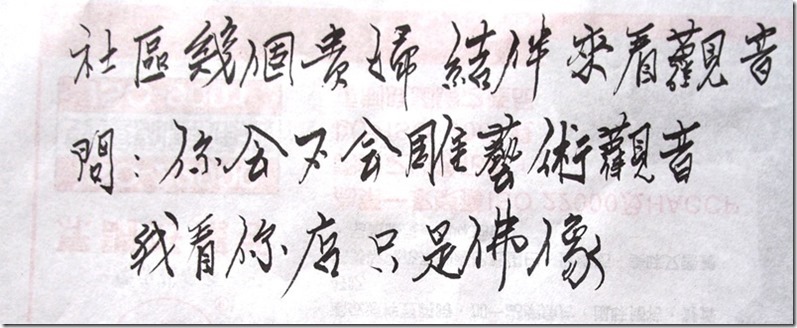 社區幾個貴婦結伴來看觀音
問：你会不会雕藝術觀音
我看你店只是佛像